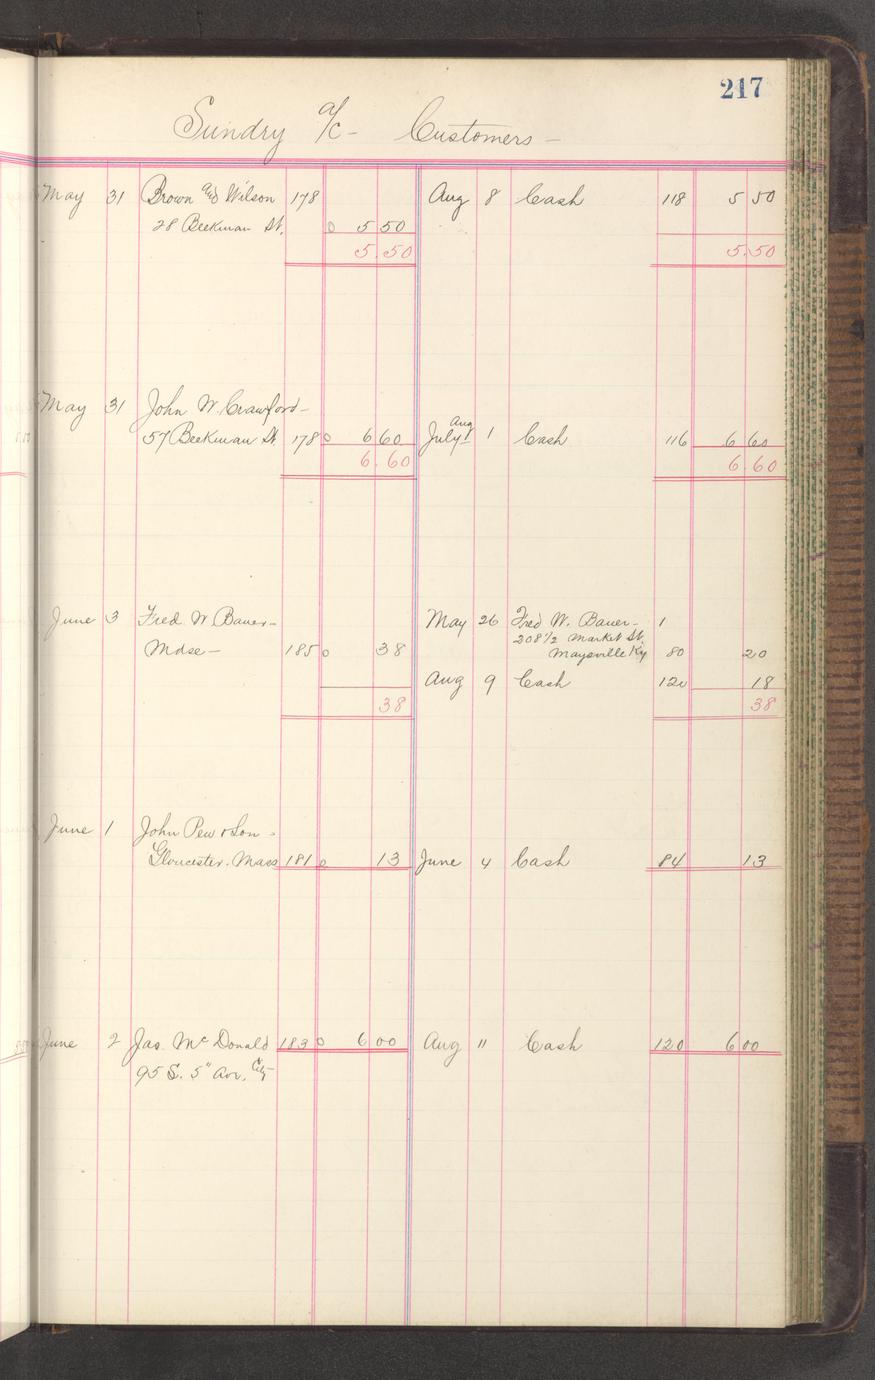 217
Sundry a/c - Customers -
May 31 Brown and Wilson 178 Aug 8 Cash 118 5 50
28 Beekman St. 0 5 50
5.50 5.50
May 31 John W. Crawford -
57 Beekman St. 178 0 6 60 July Aug 1 Cash 116 6 60
6.60 6.60
June 3 Fred W. Bauer - May 26 Fred W. Bauer - 1
208 1/2 Market St.
Mdse - 185 0 38 Maysville Ky 80 20
Aug 9 Cash 120 18
38 38
June 1 John Pew & Son -
Gloucester. Mass 181 0 13 June 4 Cash 84 13
June 2 Jas. McDonald 183 0 6 00 Aug 11 Cash 120 6 00
95 S. 5" Ave. City